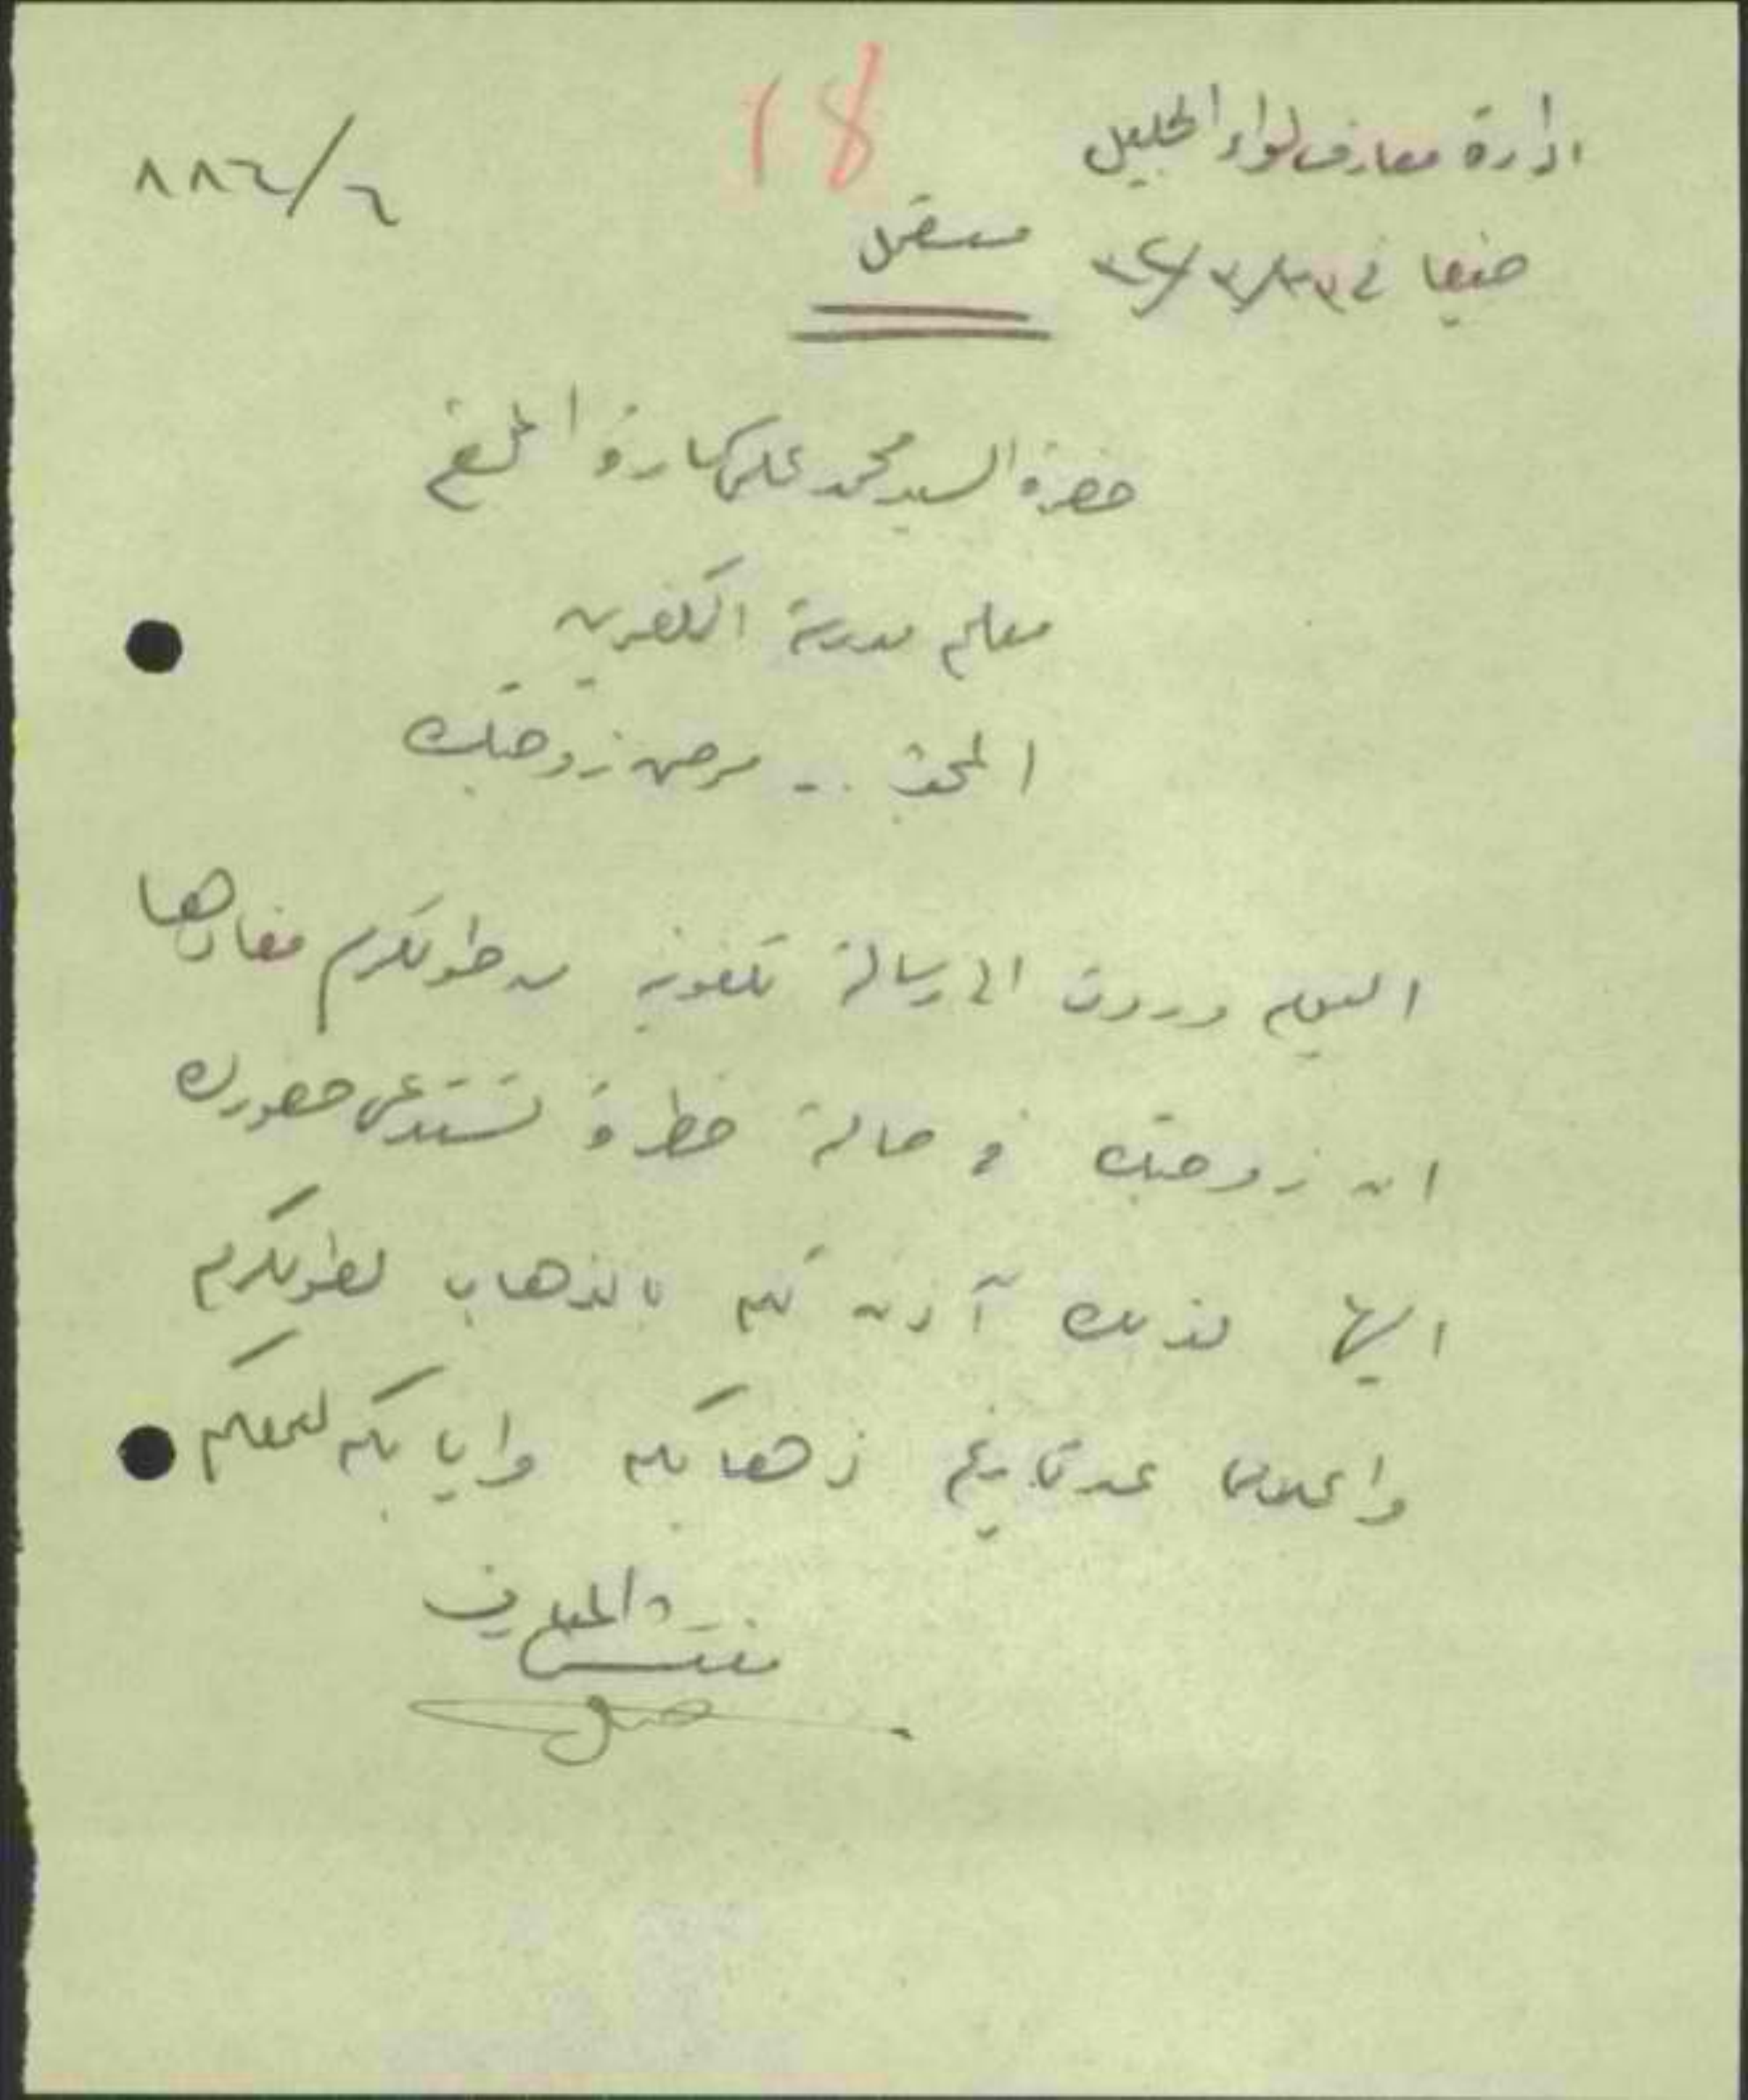 18
ادارة معارف لواء الجليل
٨٨٦/٦
حيفا في مستعجل
حضرة السيد محمد علي المحترم
معلم مدرسة الكفرين
المبحث :- مرض زوجتك
اليوم وردت الي رسالة تلفونية من طولكرم مفادها
ان زوجتك في حالة خطرة تستدعي حضورك
اليها لذلك آذن لكم بالذهاب لطولكرم
واعلامنا عن تاريخ ذهابكم وايابكم لعملكم
مفتش المعارف